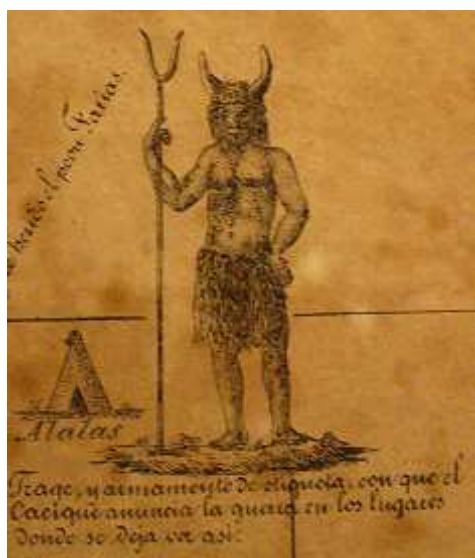 el peon Farias.
Atalas
Trage, y armamento de etiqueta, con que el
Cacique anuncia la guera en los lugares
donde se deja ver asi.